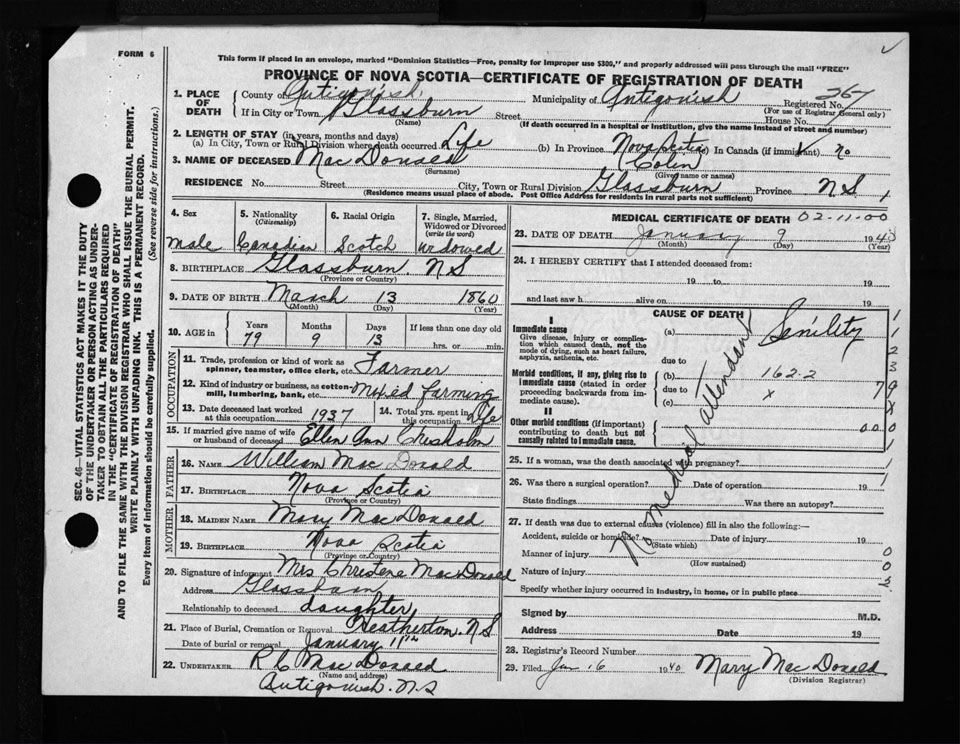 FORM 6
This form if placed in an envelope, marked "Dominion Statistics—Free, penalty for improper use $300," and properly addressed will pass through the mail "FREE"
PROVINCE OF NOVA SCOTIA—CERTIFICATE OF REGISTRATION OF DEATH
1. PLACE OF DEATH County of Antigonish Municipality of Antigonish Registered No. 267
(For use of Registrar General only)
If in City or Town Glassburn Street House No.
(Name) (If death occurred in a hospital or institution, give the name instead of street and number)
2. LENGTH OF STAY (in years, months and days)
(a) In City, Town or Rural Division where death occurred Life (b) In Province Nova Scotia (c) In Canada (if immigrant) no
3. NAME OF DECEASED MacDonald (Colin)
(Surname) (Given name or names)
RESIDENCE No. Street City, Town or Rural Division Glassburn Province N.S
(Residence means usual place of abode. Post Office Address for residents in rural parts not sufficient)
4. Sex male
5. Nationality (Citizenship) Canadian
6. Racial Origin Scotch
7. Single, Married, Widowed or Divorced (write the word) widowed
8. BIRTHPLACE Glassburn. N S
(Province or Country)
9. DATE OF BIRTH March 13 1860
(Month) (Day) (Year)
10. AGE in Years Months Days If less than one day old
79 9 13 hrs. or min.
OCCUPATION
11. Trade, profession or kind of work as spinner, teamster, office clerk, etc. Farmer
12. Kind of industry or business, as cotton-mill, lumbering, bank, etc. Mixed farming
13. Date deceased last worked at this occupation 1937
14. Total yrs. spent in this occupation Life
15. If married give name of wife or husband of deceased Ellen Ann Chisholm
FATHER
16. NAME William MacDonald
17. BIRTHPLACE Nova Scotia
(Province or Country)
MOTHER
18. MAIDEN NAME Mary MacDonald
19. BIRTHPLACE Nova Scotia
(Province or Country)
20. Signature of informant Mrs Christene MacDonald
Address Glassburn
Relationship to deceased daughter
21. Place of Burial, Cremation or Removal Heatherton. N.S
Date of burial or removal January 11th
22. UNDERTAKER R C MacDonald
(Name and address)
Antigonish. N.S
MEDICAL CERTIFICATE OF DEATH 02-11-00
23. DATE OF DEATH January 9 194
(Month) (Day) (Year)
24. I HEREBY CERTIFY that I attended deceased from:
19 to 19
and last saw h alive on 19
CAUSE OF DEATH
I
Immediate cause
Give disease, injury or complication which caused death, not the mode of dying, such as heart failure, asphyxia, asthenia, etc.
(a) Senility
due to
Morbid conditions, if any, giving rise to immediate cause (stated in order proceeding backwards from immediate cause).
(b) 162-2
due to x
(c)
II
Other morbid conditions (if important) contributing to death but not causally related to immediate cause.
No medical attendant
1
1
2
3
7 9
X
0 0 0
1
25. If a woman, was the death associated with pregnancy? 1
26. Was there a surgical operation? Date of operation 19 1
State findings Was there an autopsy?
27. If death was due to external causes (violence) fill in also the following:—
Accident, suicide or homicide? Date of injury 19
(State which)
Manner of injury 0
(How sustained)
Nature of injury 0
Specify whether injury occurred in industry, in home, or in public place
Signed by M.D.
Address Date 19
28. Registrar's Record Number
29. Filed Jan 16 1940 Mary MacDonald
(Division Registrar)
SEC. 46—VITAL STATISTICS ACT MAKES IT THE DUTY
OF THE UNDERTAKER OR PERSON ACTING AS UNDER-
TAKER TO OBTAIN ALL THE PARTICULARS REQUIRED
IN THE "CERTIFICATE OF REGISTRATION OF DEATH"
AND TO FILE THE SAME WITH THE DIVISION REGISTRAR WHO SHALL ISSUE THE BURIAL PERMIT.
WRITE PLAINLY WITH UNFADING INK. THIS IS A PERMANENT RECORD.
Every item of information should be carefully supplied. (See reverse side for instructions.)